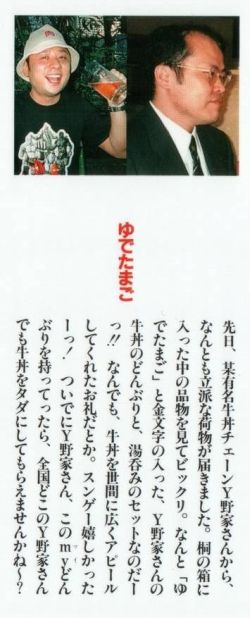 ゆでたまご
先日、某有名牛丼チェーンY野家さんから、
なんとも立派な荷物が届きました。桐の箱に
入った中の品物を見てビックリ。なんと「ゆ
でたまご」と金文字の入った、Y野家さんの
牛丼のどんぶりと、湯呑みのセットなのだー
っ!! なんでも、牛丼を世間に広くアピール
してくれたお礼だとか。スンゲー嬉しかった
ーっ! ついでにY野家さん、このmyどん
ぶりを持ってったら、全国どこのY野家さん
でも牛丼をタダにしてもらえませんかね〜?